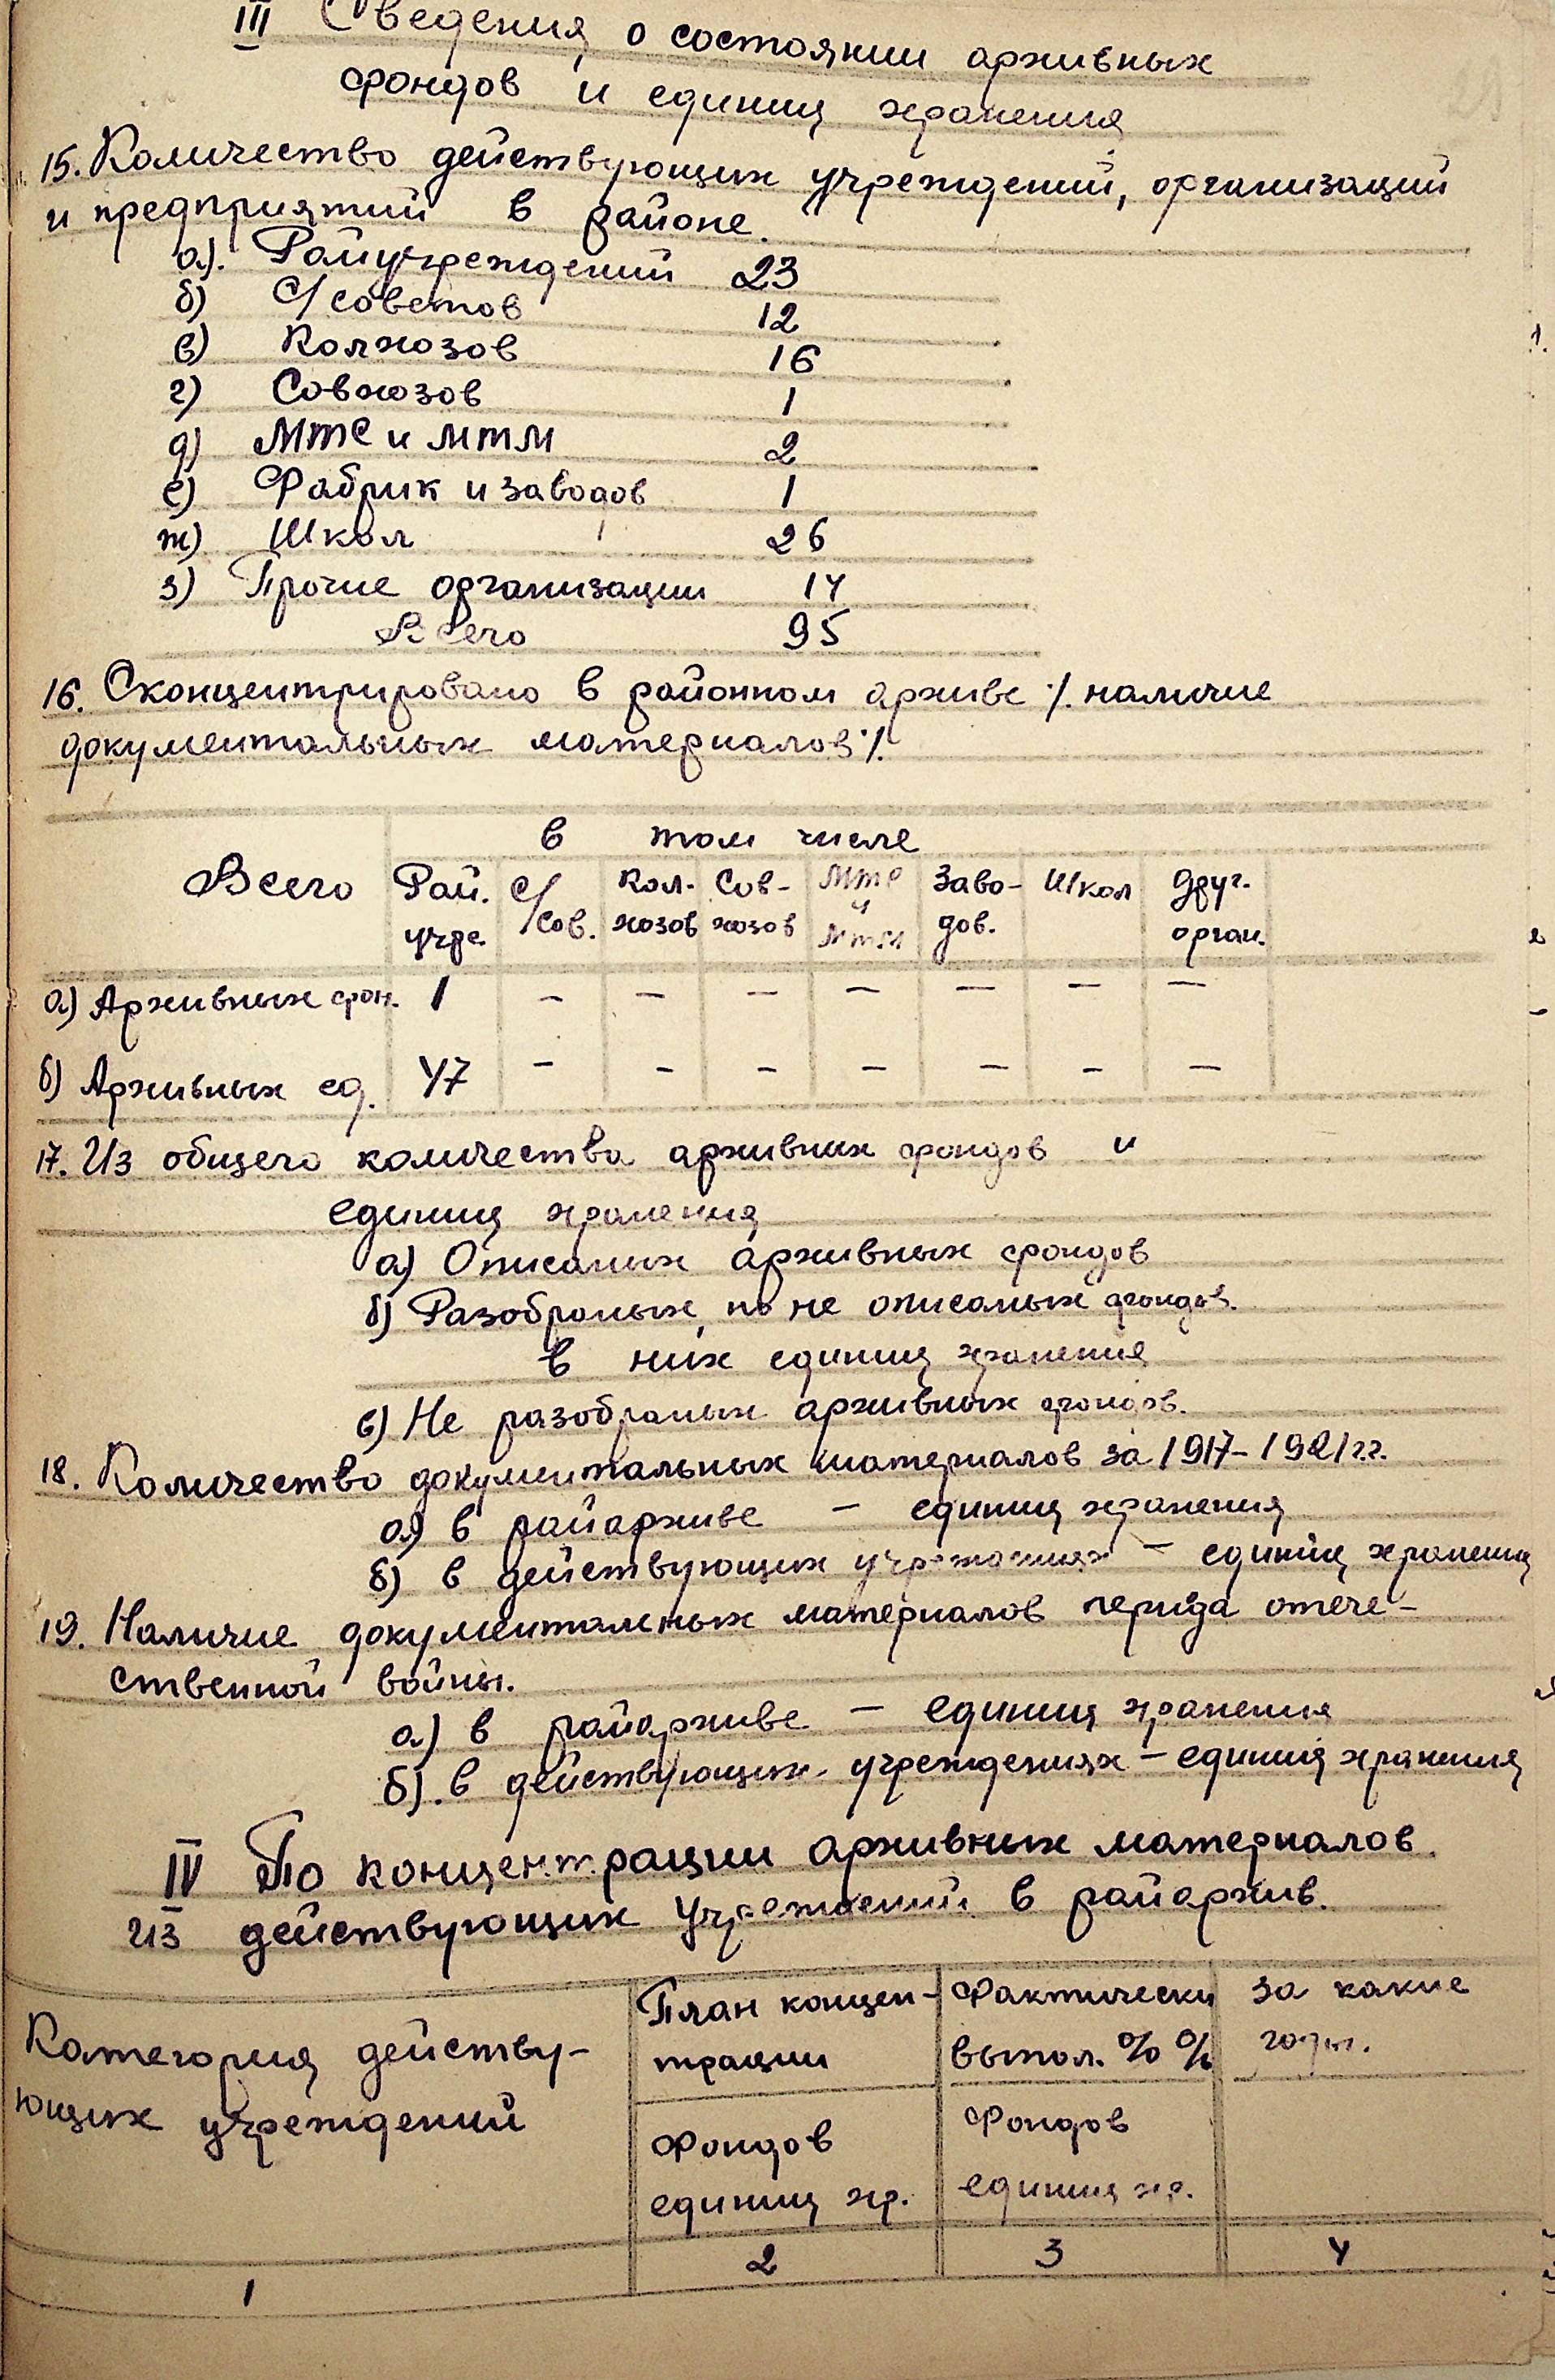 III Сведения о состоянии архивных
фондов и единиц хранения
15. Количество действующих учреждений, организаций
и предприятий в районе.
а). Райучреждений 23
б) С/советов 12
в) Колхозов 16
г) Совхозов 1
д) МТС и МТМ 2
е) Фабрик и заводов 1
ж) Школ 26
з) Прочие организации 14
Всего 95
16. Сконцентрировано в районном архиве /. наличие
документальных материалов ./.
в том числе
Всего Рай. С/ Кол- Сов- МТС Заво- Школ Друг.
учре. Сов. хозов хозов и МТМ дов. орган.
а) Архивных фон. 1 – – – – – – –
б) Архивных ед. 47 – – – – – – –
17. Из общего количества архивних фондов и
единиц хранения
а) Описаных архивных фондов
б) Разобраных, но не описаных фондов.
в них единиц хранения
в) Не разобраных архивных фондов.
18. Количество документальных материалов за 1917-1921 г.г.
а) в райархиве – единиц хранения
б) в действующих – единиц хранения
19. Наличие документальных материалов периода отече-
ственной войны.
а) в райархиве – единиц хранения
б). в действующих учреждениях – единиц хранения
IV По концентрации архивных материалов
из действующих учреждений в райархив.
Категория действу- План концен- Фактически за какие
ющих учреждений трации выпол. % % годы.
Фондов Фондов
единиц хр. единиц хр.
1 2 3 4